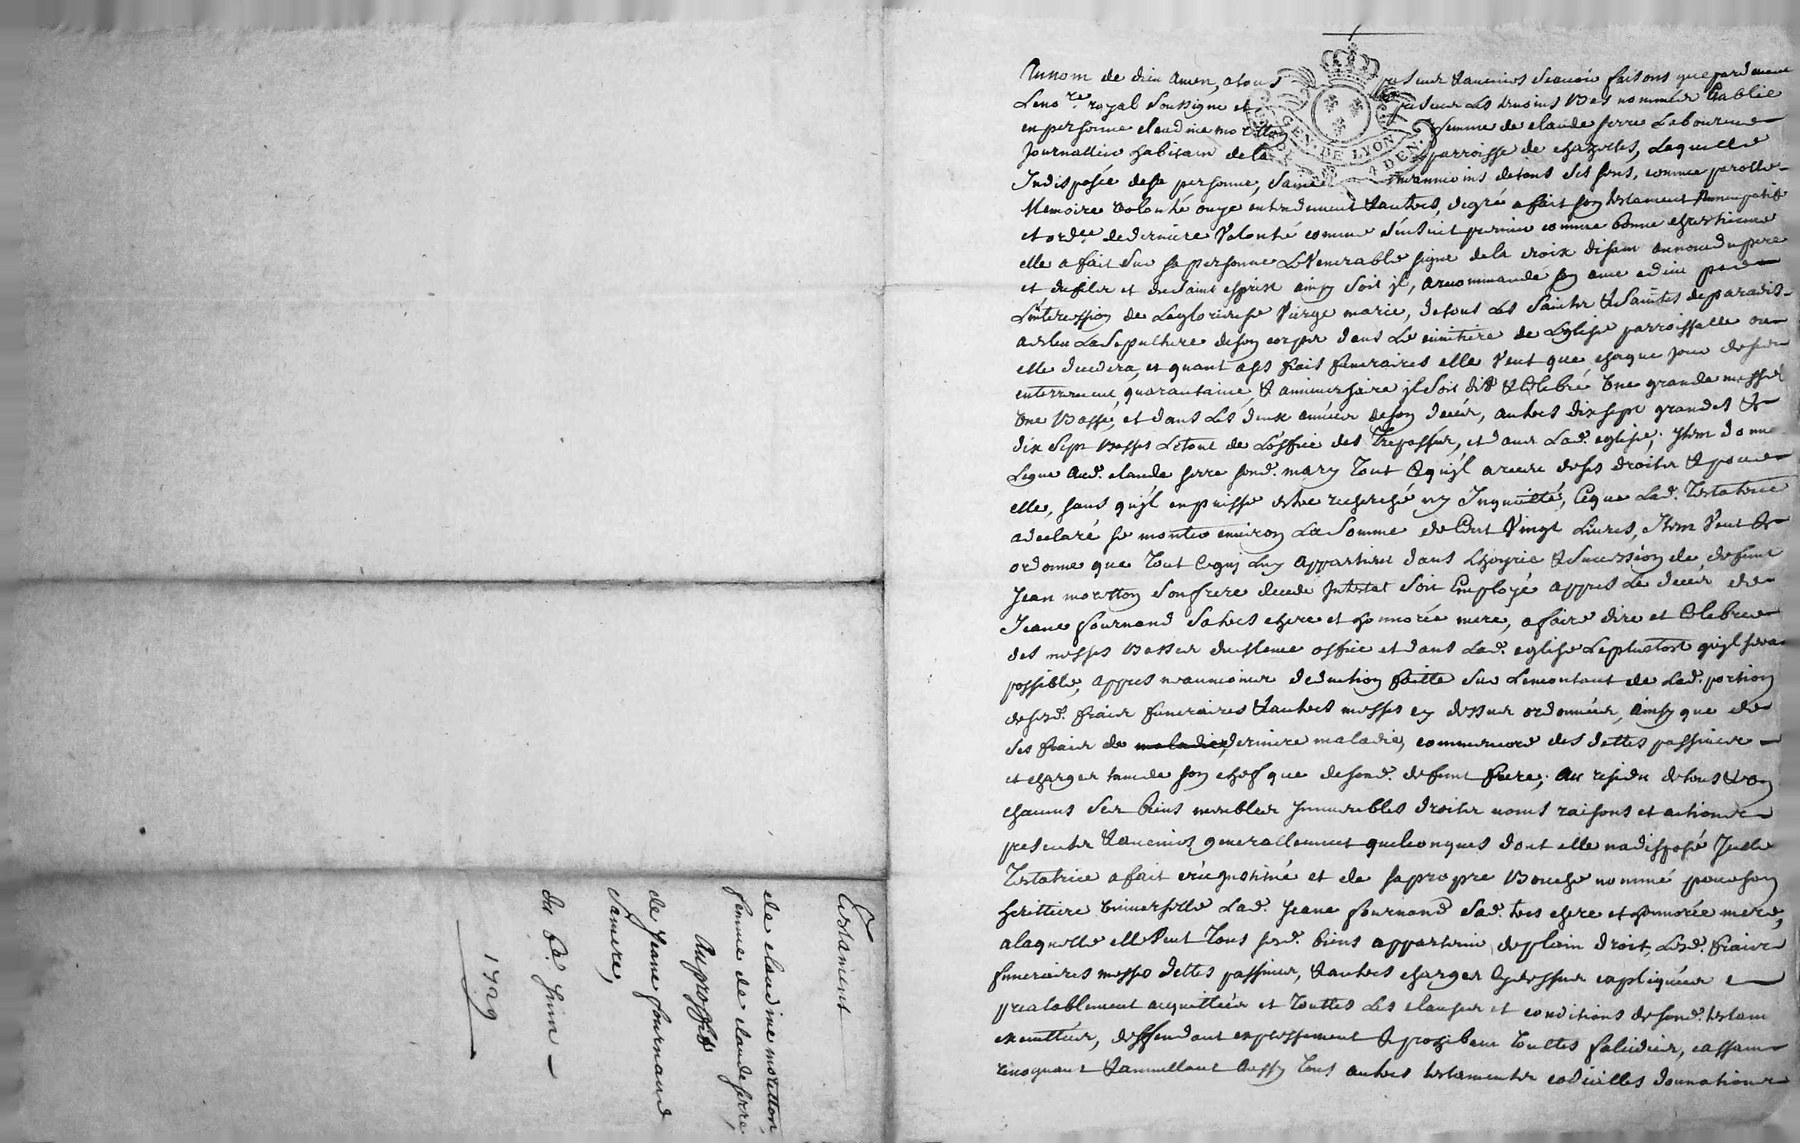 Testament
de claudine moretton,
femme de claude ferre,
Au proffit
de Jeane fournand
Sa mere,
du 8e. Juin
1729
GEN. DE LYON
4 DEN.
Au nom de dieu amen, a tous presents & avenirs scavoir faisons que pardevant
Le no.re royal soussigné et presens Les temoins Bas nommés establie
en personne claudine moretton femme de claude ferre Laboureur
Journallier habitant de la parroisse de chazottes, Laquelle
Indisposée de sa personne, saine neanmoins de tous ses sens, comme parolle
Memoire volonté ouye entendement & autres, de gré a fait son testament Nuncupatif
et ord.ce de derniere Volonté comme s'ensuit premier comme bonne chrestienne
elle a fait sur sa personne Le Venerable signe de la croix disant au nom du pere
et du fils et du saint esprit ainsy soit il, a recommandé son ame a dieu par
L'intercession de La glorieuse Vierge marie, de tous Les Saints & Saintes de paradis
a esleu La Sepulture de son corps dans Le cimitiere de L'eglise parroissialle ou
elle decedera, et quant a ses frais funeraires elle Veut que chaque jour de son
enterrement, quarantaine, & anniversaire il soit dit & celebré Une grande messe
Une Basse, et dans Les deux années de son deces, autres dix sept grandes &
dix sept Basses Le tout de L'office des Trepassés, et dans Lad. eglise, Item donne
Legue Aud. claude ferre sond. mary Tout ce qu'il a receu de ses droits & pour
elle, sans qu'il en puisse estre recherché ny Inquietté, ce que Lad. Testatrice
a declaré se monter environ La somme de Cent Vingt Livres, Item Veut &
ordonne que Tout ce qui Luy appartient dans L'hoyrie & succession de defunt
Jean moretton son frere decedé Intestat soit Employé appres Le deces de
Jeane fournand sa tres chere et honnorée mere, a faire dire et Celebrer
des messes Basses du mesme office et dans Lad. eglise Le plustost qu'il sera
possible, appres neanmoins deduction faitte sur Le montant de Lad. portion
de sesd. frais funeraires & autres messes cy dessus ordonnées, ainsy que de
ses frais de maladie derniere maladie, comme encore des dettes passives
et charges tant de son chef que de sond. defunt frere; Au residu de tous & un
chacuns ses biens meubles Immeubles droits noms raisons et actions
presents & avenirs generallement quelconques dont elle n'a disposé Jcelle
Testatrice a fait crée institué et de sa propre Bouche nommé pour son
heritiere Universelle Lad. Jeane fournand sad. tres chere et honnorée mere,
a laquelle elle Veut Tous sesd. biens appartenir de plein droit, Lesd. frais
funeraires messes dettes passives, & autres charges cy dessus expliquées
prealablement acquittées et Touttes Les clauses et conditions de sond. testam
executtées, deffendant expressement & prohibant Touttes falcidies, cassant
revoquant & annullant Aussy Tous autres testaments codicilles donnations